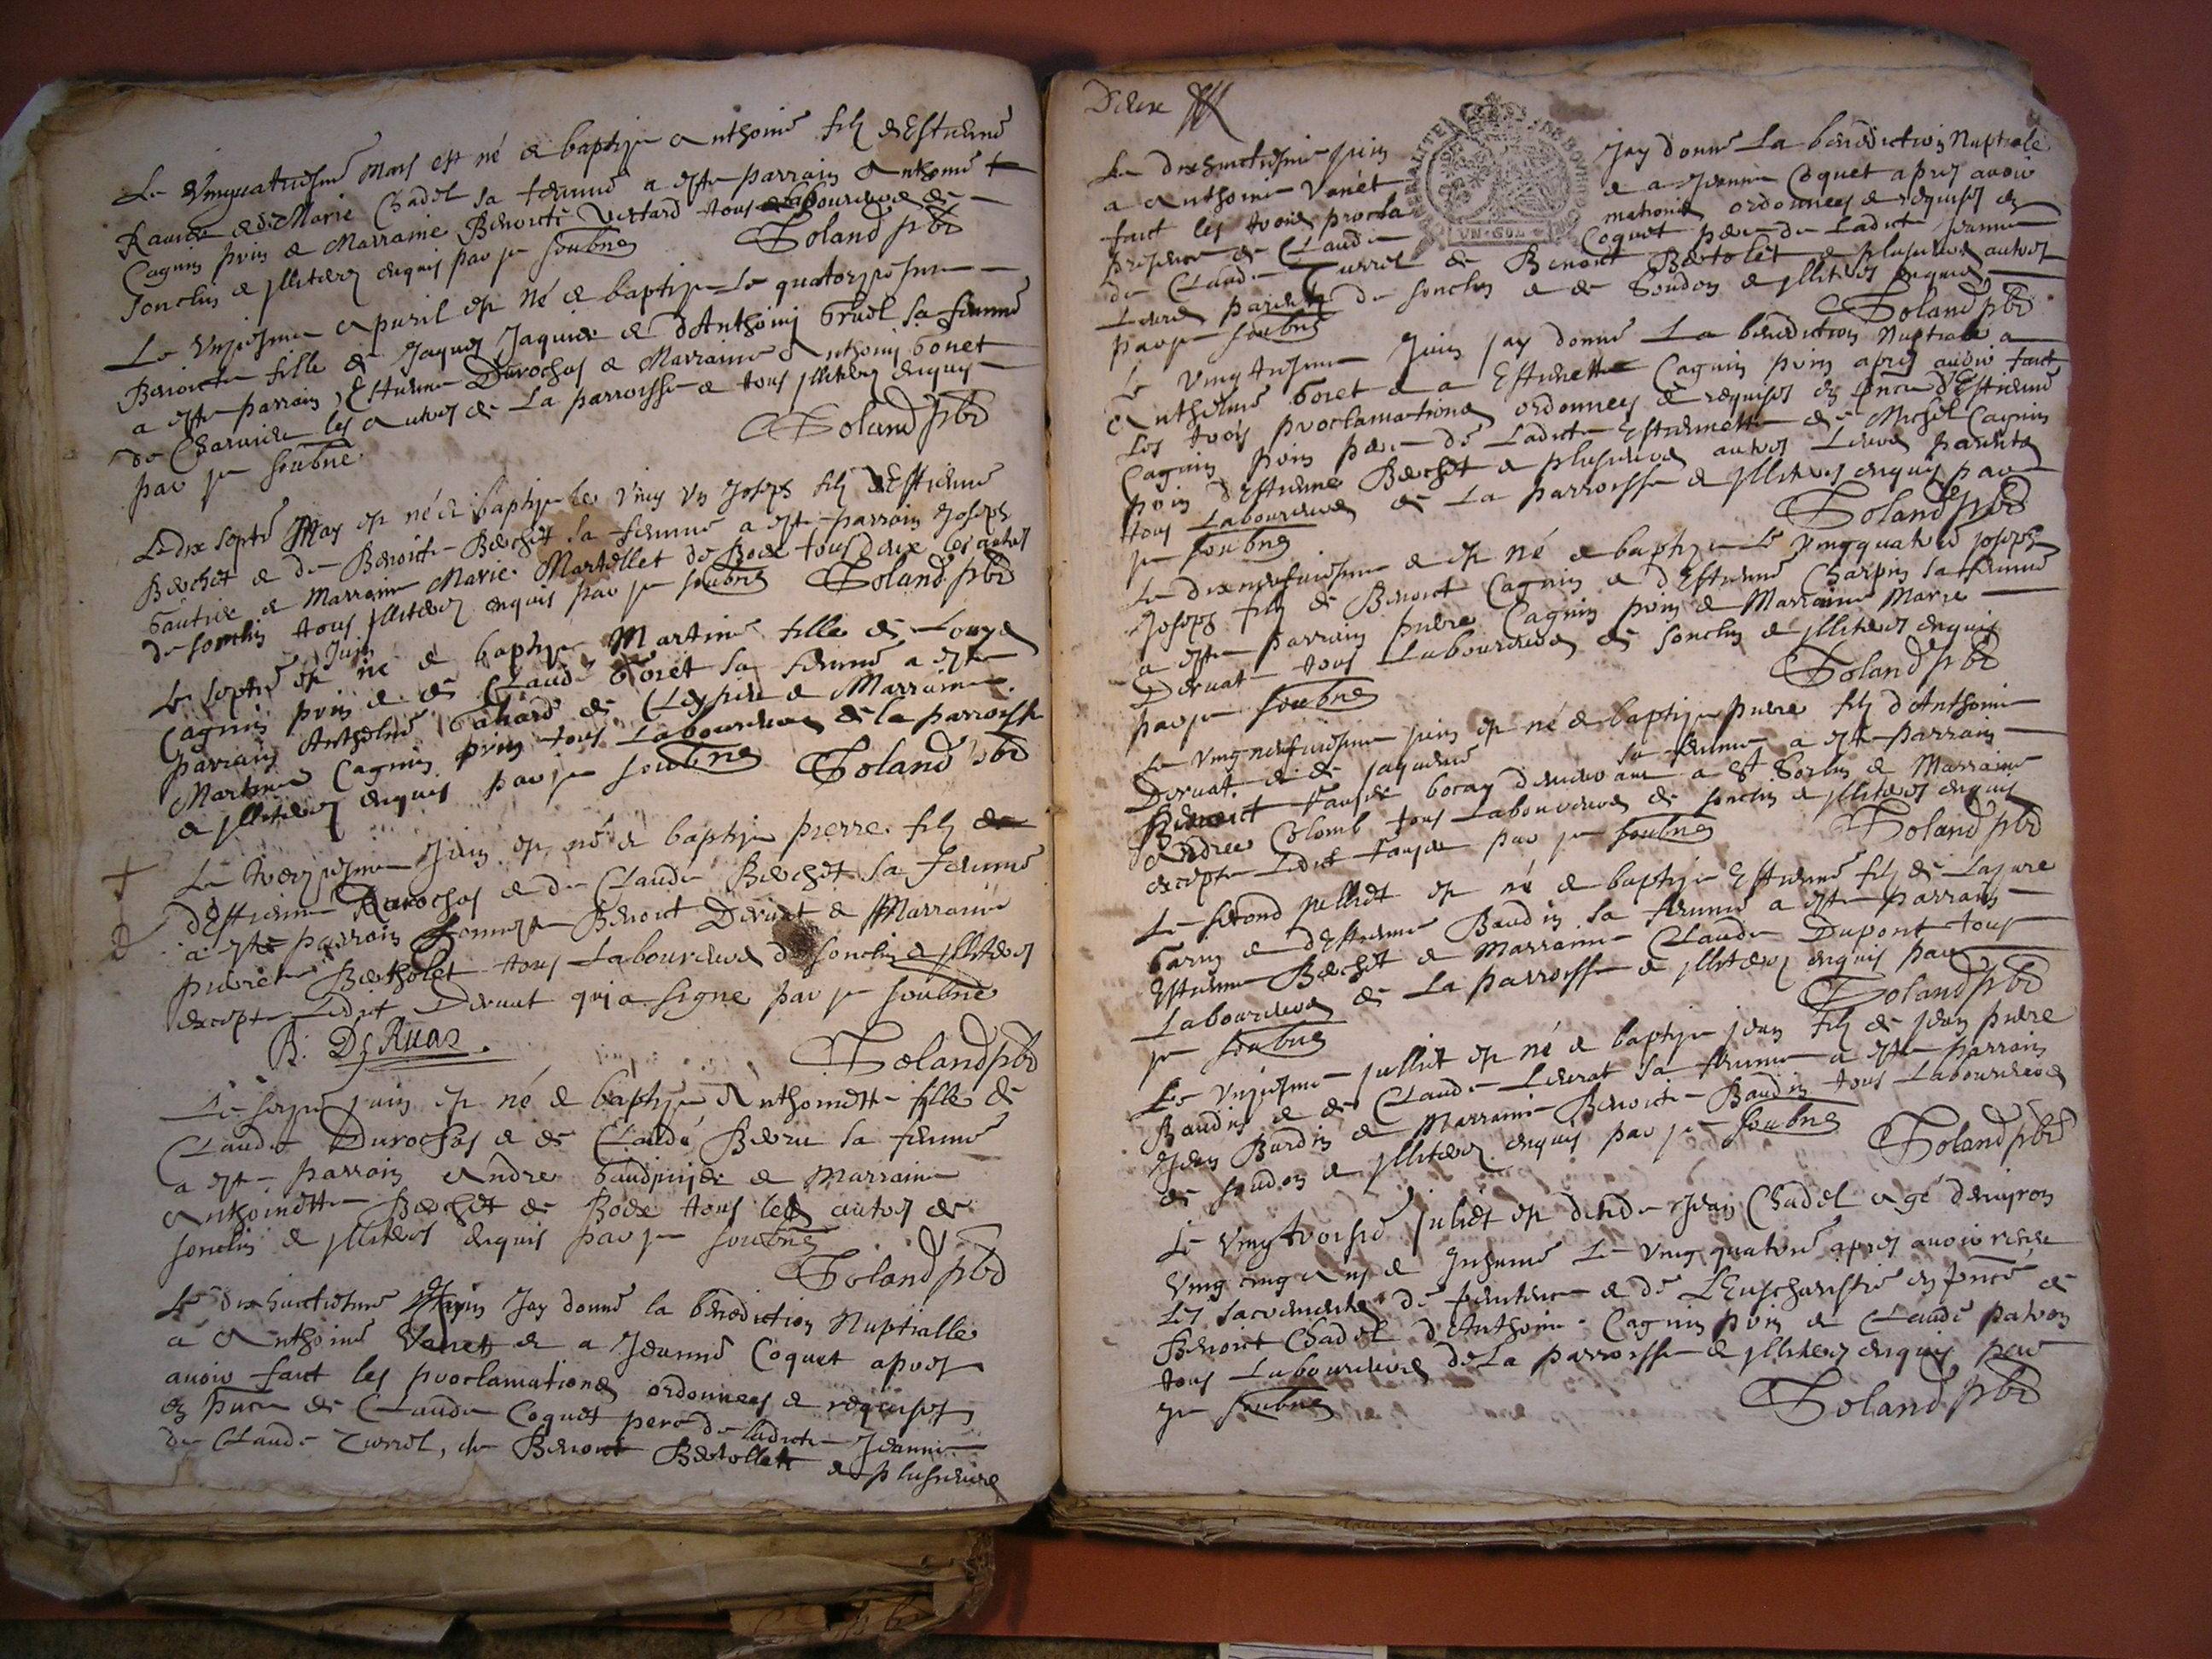 Le Vingquatriesme Mars est né & baptise Anthoine filz d'Estienne
Ravier & de Marie Chadel sa femme a este parrain Anthoine
Cagnin prin & Marraine Benoicte tous laboureurs de
Sonclin & illiteres enquis par je soubne Goland pbr
Le Unziesme Apuril est né & baptise le quatorziesme
Benoicte fille de Jaques Jaquier & d'Anthoini sa femme
a este parrain Estienne Durochas & Marraine Anthoini Goret
de les autres de La parroisse & tous illiteres enquis
par je soubne Goland pbr
Le dix septe May est né & baptise le Ving Un Joseph filz d'Estienne
Berchet & de Benoicte Berchet sa femme a este parrain Joseph
Gautier & Marraine Marie Martellet de tous deux les autres
de Sonclin tous illiteres enquis par je soubne Goland pbr
Juin
Le septe est né & baptise Martine fille de Louys
Cagnin prin & de Claude Goret sa femme a este
parrain Anthelme de & Marraine
Martine Cagnin prin tous Laboureurs de la parroisse
& illiteres enquis par je soubne Goland pbr
Le treziesme Juin est né & baptise pierre filz
d'Estienne Durochas & de Claude Berchet sa femme
a este parrain honneste Benoit Deruat & Marraine
pierrete Bertholet tous Laboureurs de Sonclin & illiteres
excepte Ledict Deruat qui a signe par je soubne
B. De Ruas. Goland pbr
Le seze juin est né & baptise Anthoinette fille de
Claude Durochas & de Claude sa femme
a este parrain Andre & Marraine
Anthoinette Berchet de tous les autres de
Sonclin & illiteres enquis par je soubne
Goland pbr
Le dixhuictiesme Juin Jay donne la benediction Nuptialle
a Anthoine Venet & a Jeanne Coquet apres
avoir faict les proclamations ordonnees & requises
en pnce de Claude Coquet pere de ladicte Jeanne
de Claude Turrel, de Benoit Bertollet & plusieurs
Le dixhuictiesme Juin Jay donne La benediction Nuptiale
a Anthoine Venet & a Jeanne Coquet apres avoir
faict les trois procla mations ordonnees & requises en
presence de Claude Coquet pere de Ladict Jeanne
de Claude Turrel de Benoit Bertolet & plusieurs autres
Leurs parents de Sonclin & de Soudon & illiteres enquis
par je soubne Goland pbr
Le Vingtiesme Juin jay donne La benediction Nuptiale a
Anthelme Goret & a Estienette Cagnin prin apres avoir faict
Les trois proclamations ordonnees & requises en pnce d'Estienne
Cagnin prin pere de Ladicte Estiennette de Michel Cagnin
prin d'Estienne Berchet & plusieurs autres Leurs parents
tous Laboureurs de La parroisse & illiteres enquis par
je soubne Goland pbr
Le dixneufuiesme est né & baptise Le Vingquatre Joseph
Joseph filz de Benoit Cagnin & d'Estienne Charpin sa femme
a este parrain pierre Cagnin prin & Marraine Marie
Deruat tous Laboureurs de Sonclin & illiteres enquis
par je soubne Goland pbr
Le Vingneufuiesme juin est né & baptise pierre filz d'Anthoine
Deruat & de Jaqueme sa femme a este parrain
Benoict a St Sorlin & Marraine
Andree Colomb tous Laboureurs de Sonclin & illiteres enquis
excepte Ledict par je soubne Goland pbr
Le Second Julliet est né & baptise Estienne filz de Lazare
& d'Estienne Baudin sa femme a este parrain
Estienne Berchet & Marraine Claude Dupont tous
Laboureurs de La parroisse & illiteres enquis par
je soubne Goland pbr
Le Unziesme julliet est né & baptise Jean filz de Jean pierre
Baudin & de Claude sa femme a este parrain
Jean Bardin & Marraine Benoicte Baudin tous Laboureurs
de Soudon & illiteres enquis par je soubne Goland pbr
Le Ving troisie Juliet est decede Jean Chadel agé denuiron
Ving cinq ans & Inhumé Le Ving quatre apres avoir receu
Les sacrements de penitence & de L'Euscharistie en pnce de
Benoit Chadel d'Anthoine Cagnin prin & Claude patron
tous Laboureurs de La parroisse & illiteres enquis par
je soubne Goland pbr